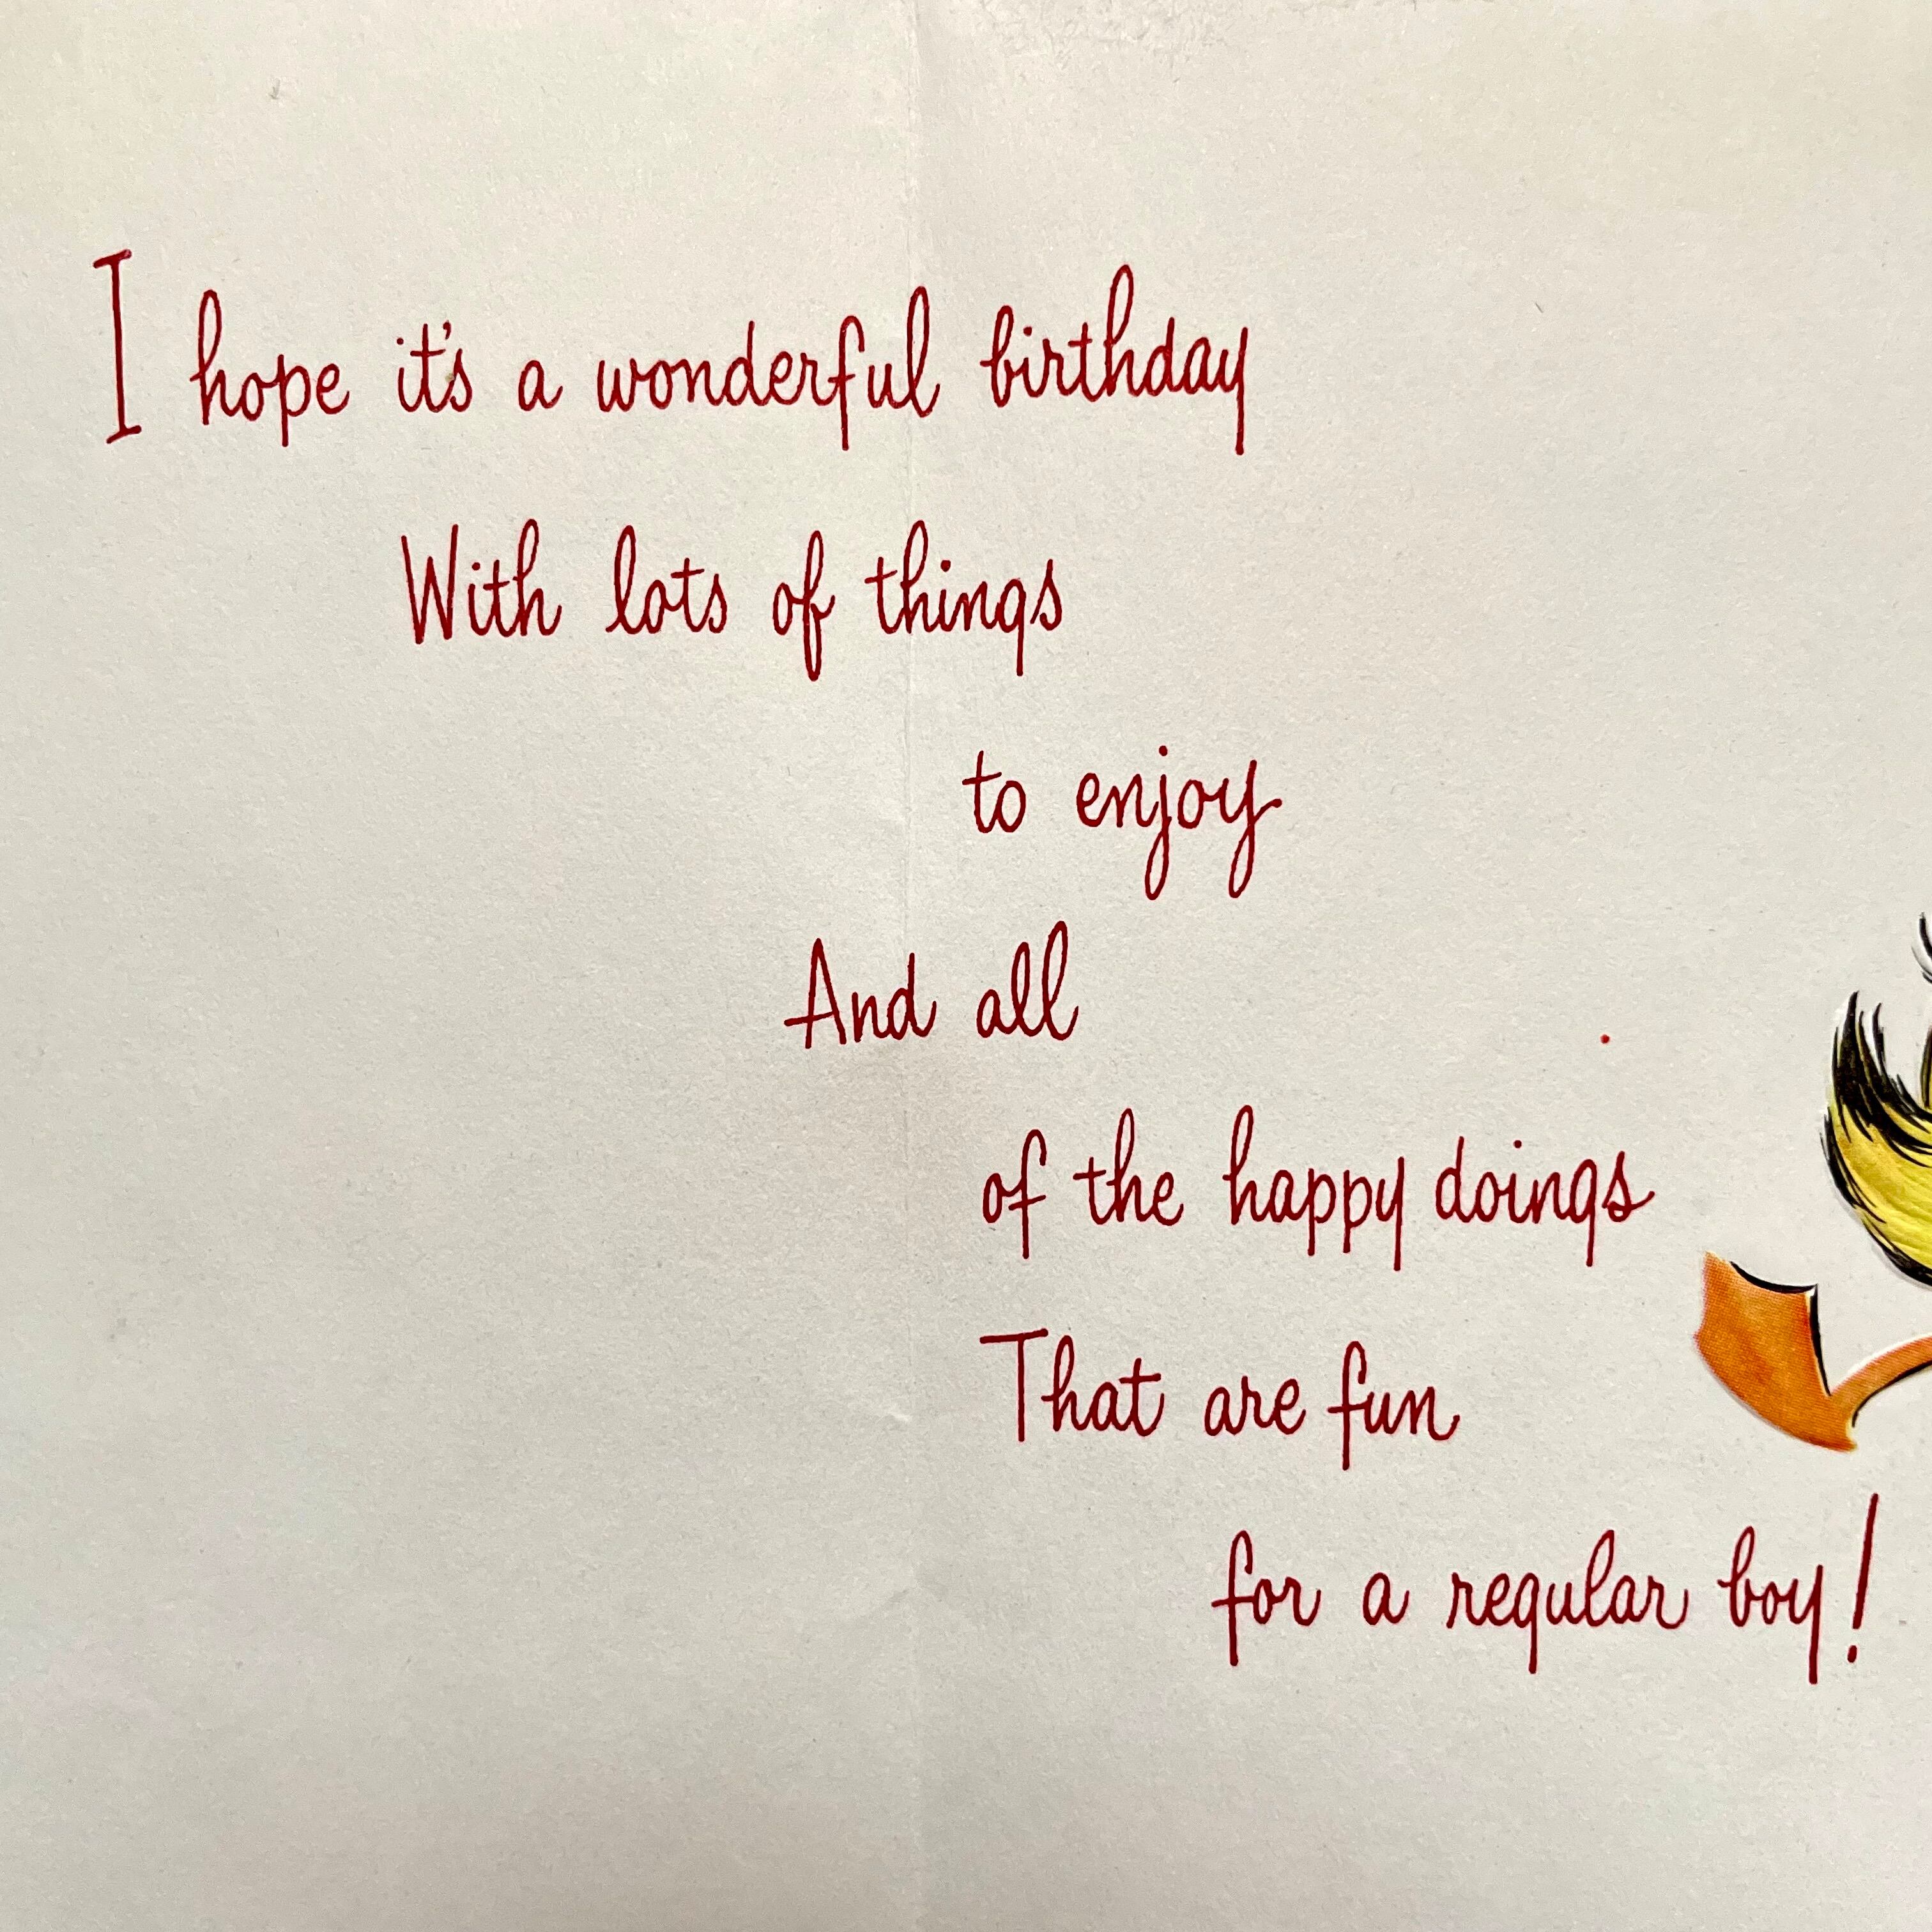 I hope it's a wonderful birthday
With lots of things
to enjoy
And all
of the happy doings
That are fun
for a regular boy!